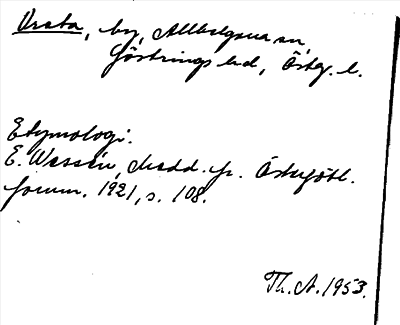 Vrsta, by, Allhelgona sn,
Göstrings hd, Östg. l.
Etymologi.
E. Wessén, Medd. fr. Östergötl.
fornm. 1921, s. 108.
Th. A. 1953.